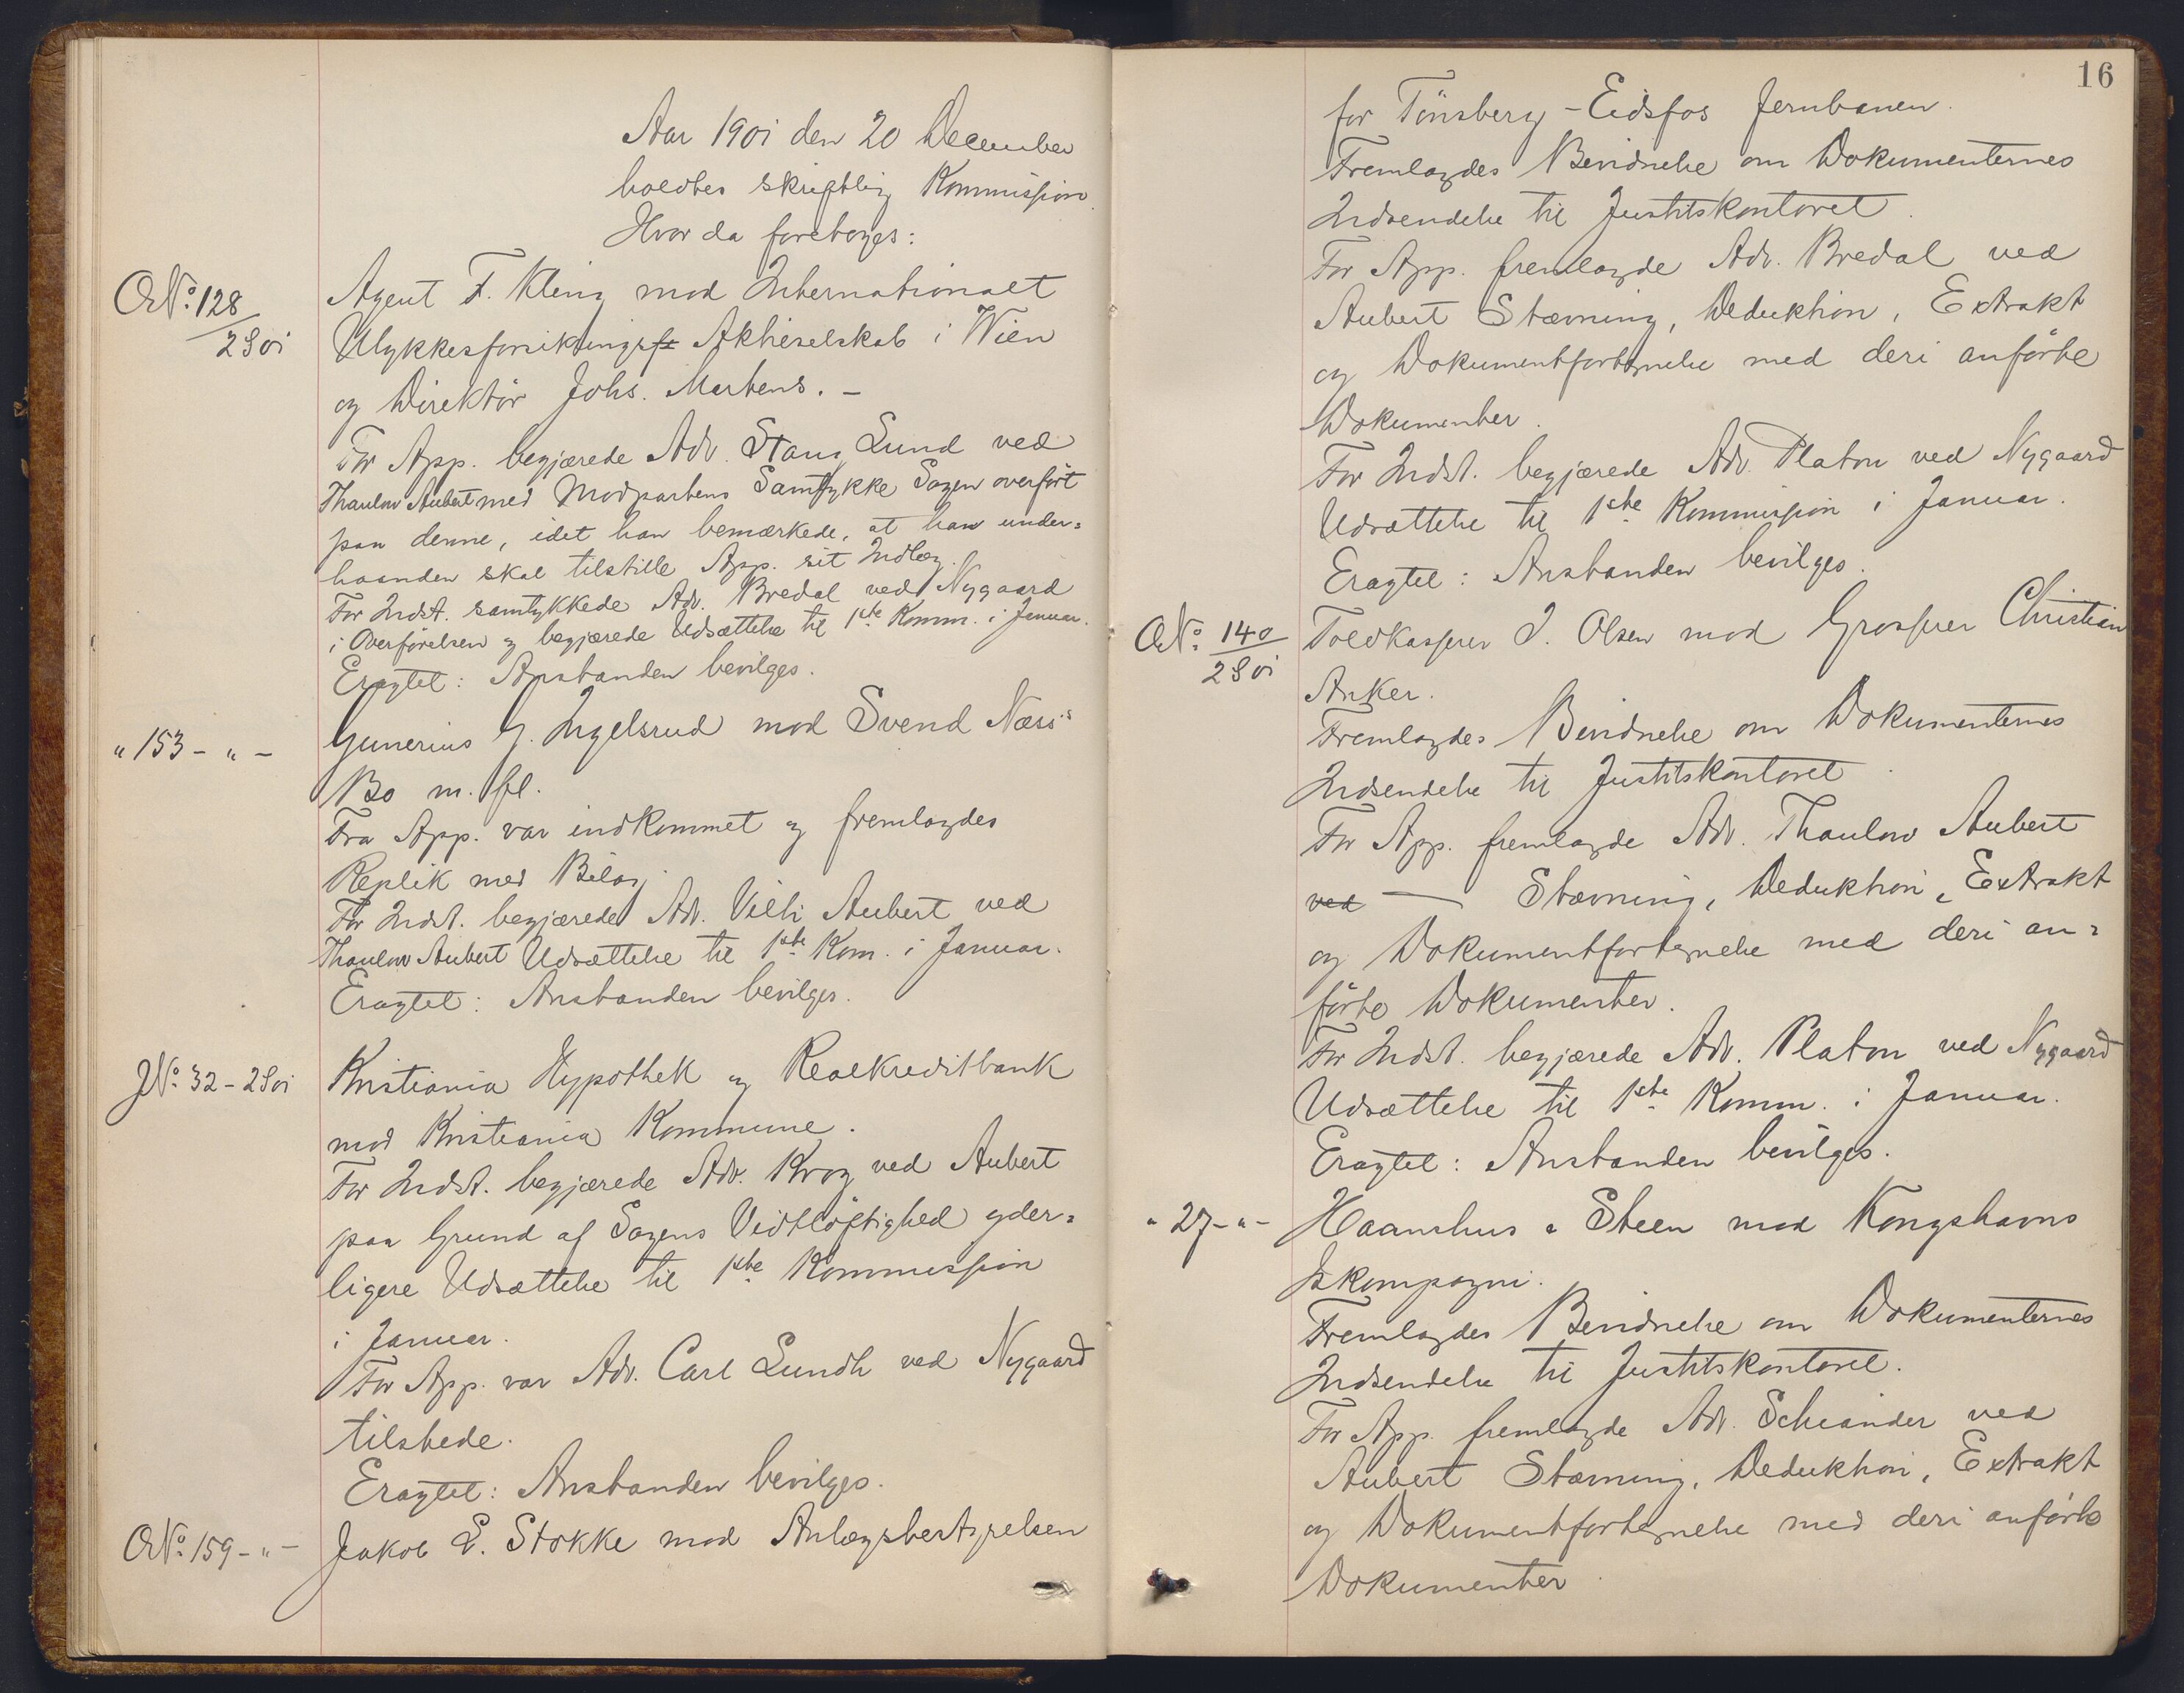 Aar 1901 den 20 December
holdtes skriftlig Kommission.
Hvor da foretoges:
O.No. 128
2S01
Agent F. Kling mod Internationalt
Ulykkesforsikrings Aktieselskab i Wien
og Direktör Johs. Mertens. -
For App. begjærede Adv. Stang Lund ved
Thaulow Aubert med Modpartens Samtykke Sagen overfört
paa denne, idet han bemærkede, at han under=
haanden skal tilstille App. sit Indlæg.
For Indst. samtykkede Adv. Bredal ved Nygaard
i Overförelsen og begjærede Udsættelse til 1ste Komm. i Januar.
Eragtet: Anstanden bevilges.
" 153 - " -
Gunerius G. Ingelsrud mod Svend Næss's
Bo m. fl.
Fra App. var indkommet og fremlagdes
Replik med Bilag.
For Indst. begjærede Adv. Vilh Aubert ved
Thaulow Aubert Udsættelse til 1ste Kom. i Januar.
Eragtet: Anstanden bevilges.
J.No. 32 - 2S01
Kristiania Hypothek og Realkreditbank
mod Kristiania Kommune.
For Indst. begjærede Adv. Krog ved Aubert
paa Grund af Sagens Vidtlöftighed yder=
ligere Udsættelse til 1ste Kommission
i Januar.
For App. var Adv. Carl Lundh ved Nygaard
tilstede.
Eragtet: Anstanden bevilges.
O.No. 159 - " -
Jakob E. Stokke mod Anlægsbestyrelsen
16
for Tönsberg - Eidsfos Jernbanen.
Fremlagdes Bevidnelse om Dokumenternes
Indsendelse til Justitskontoret.
For App. fremlagde Adv. Bredal ved
Aubert Stævning, Deduktion, Extrakt
og Dokumentfortegnelse med deri anförte
Dokumenter.
For Indst. begjærede Adv. Platou ved Nygaard
Udsættelse til 1ste Kommission i Januar.
Eragtet: Anstanden bevilges.
O.No. 140
2S01
Toldkasserer J. Olsen mod Grosserer Christian
Anker.
Fremlagdes Bevidnelse om Dokumenternes
Indsendelse til Justitskontoret.
For App. fremlagde Adv. Thaulow Aubert
ved — Stævning, Deduktion, Extrakt
og Dokumentfortegnelse med deri an=
förte Dokumenter.
For Indst. begjærede Adv. Platou ved Nygaard
Udsættelse til 1ste Komm. i Januar.
Eragtet: Anstanden bevilges.
" 27 - " -
Haarnhus & Steen mod Kongshavns
Iskompagni.
Fremlagdes Bevidnelse om Dokumenternes
Indsendelse til Justitskontoret.
For App. fremlagde Adv. Schiander ved
Aubert Stævning, Deduktion, Extrakt
og Dokumentfortegnelse med deri anförte
Dokumenter.